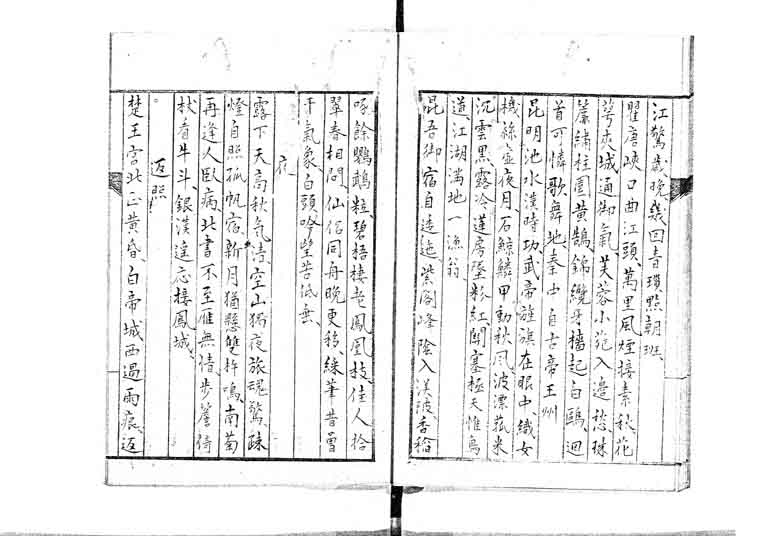 江驚歲晚、幾回青瑣點朝班、
瞿唐峽口曲江頭、萬里風煙接素秋、花
萼夾城通御氣、芙蓉小苑入邊愁、珠
簾繡柱圍黃鵠、錦纜牙檣起白鷗、迴
首可憐歌舞地、秦中自古帝王州
昆明池水漢時功、武帝旌旗在眼中、織女
機絲虛夜月、石鯨鱗甲動秋風、波漂菰米
沉雲黑、露冷蓮房墜粉紅、關塞極天惟鳥
道、江湖滿地一漁翁
昆吾御宿自逶迤、紫閣峰陰入渼陂、香稻
啄餘鸚鵡粒、碧梧棲老鳳凰枝、佳人拾
翠春相問、仙侶同舟晚更移、綵筆昔曾
干氣象、白頭吟望苦低垂、
夜
露下天高秋氣清、空山獨夜旅魂驚、疎
燈自照孤帆宿、新月猶懸雙杵鳴、南菊
再逢人臥病、北書不至雁無情、步簷倚
杖看牛斗、銀漢遙應接鳳城、
返照
楚王宮北正黃昏、白帝城西過雨痕、返